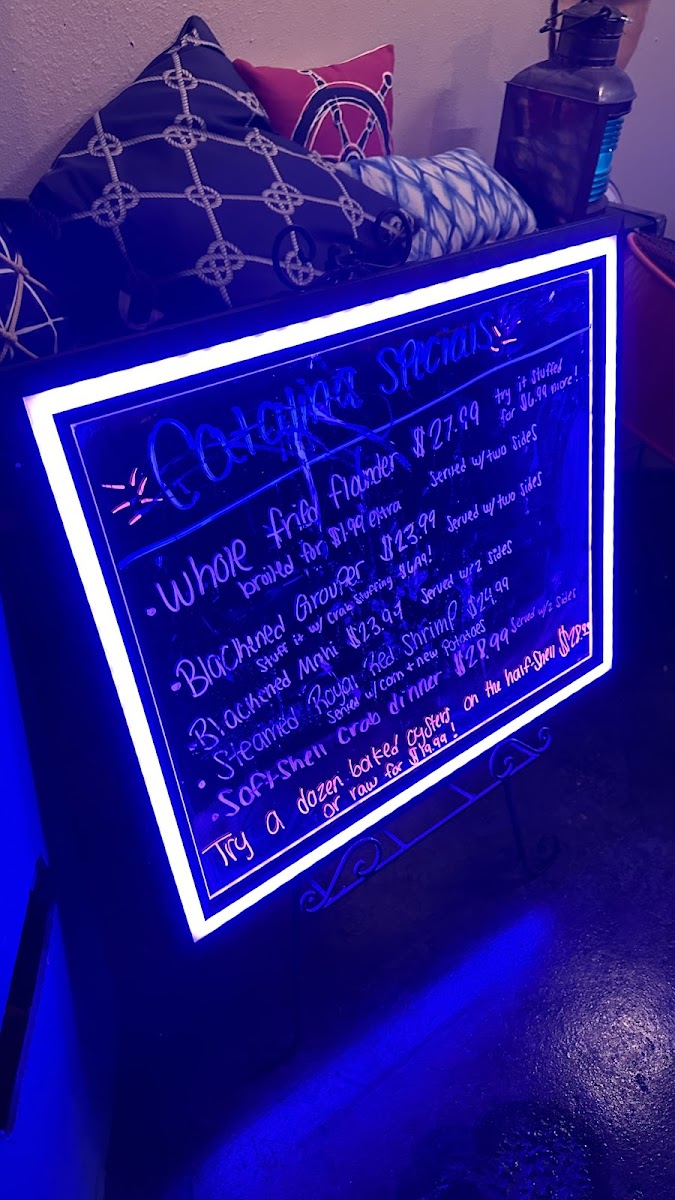 Catalina Specials
• Whole fried flounder $27.99 try it stuffed for $6.99 more!
broiled for $1.99 extra served w/ two sides
• Blackened Grouper $23.99 served w/ two sides
stuff it w/ crab stuffing $6.99!
• Blackened Mahi $23.97 served w/ 2 sides
• Steamed Royal Red Shrimp $24.99
served w/ corn + new potatoes
• Soft-Shell Crab dinner $28.99 served w/2 sides
Try a dozen baked oysters on the half-shell $28.99
or raw for $19.99!